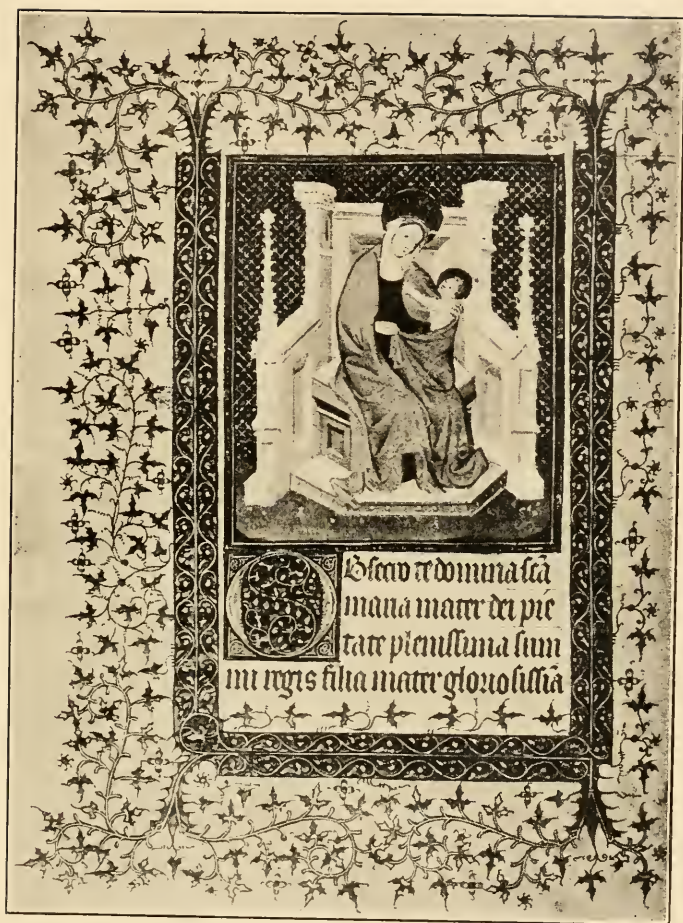 Obsecro te domina scā
maria mater dei pie
tate plenissima sum
mi regis filia mater gloriosissīa